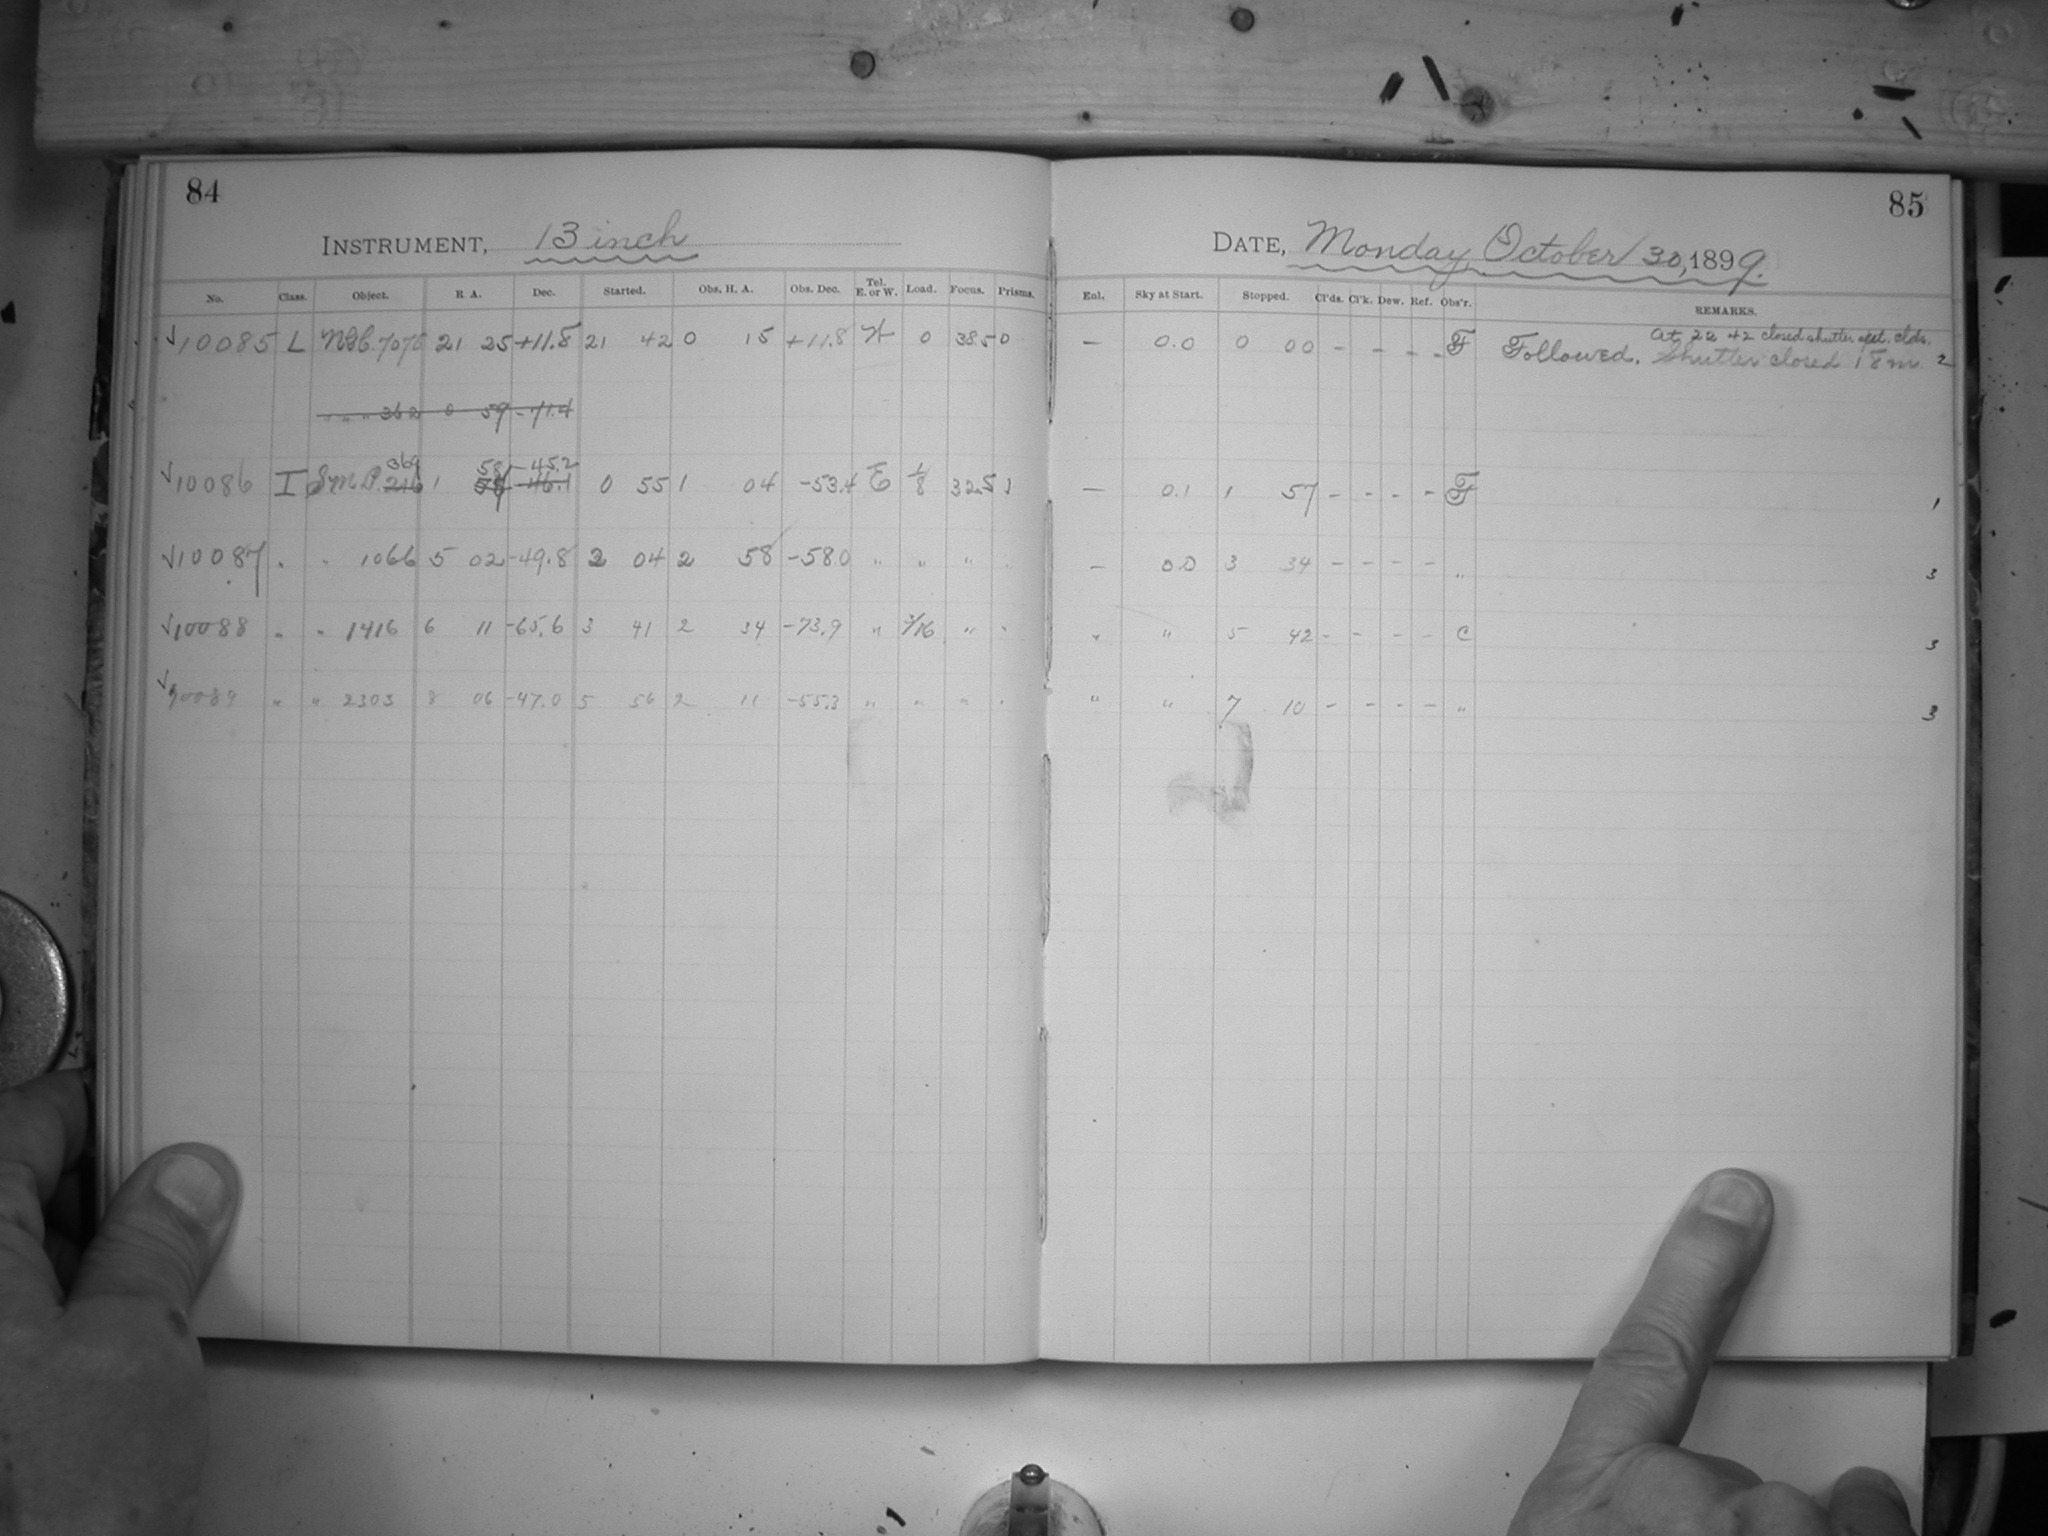 84
85
INSTRUMENT, 13 inch
DATE, Monday October 30, 1899.
No. Class. Object. R A. Dec. Started. Obs. H. A. Obs. Dec. Tel. E. or W. Load. Focus. Prisms.
Enl. Sky at Start. Stopped. Cl'ds. Cl'k. Dew. Ref. Obs'r. REMARKS.
√10085 L 21 25 +11.8 21 42 0 15 +11.8 W 0 38.5 0
— 0.0 0 00 - - - - F Followed. At 22 42 closed shutter clds.
Shutter closed 18m. 2
" " 362 0 59 -71.4
369 58 -45.2
√10086 I S.M.P. 216 1 -46.1 0 55 1 04 -53.4 E 1/8 32.5 1
— 0.1 1 57 - - - - F 1
√10087 " " 1066 5 02 -49.8 2 04 2 58 -58.0 " " " "
— 0.0 3 34 - - - - " 3
√10088 " " 1416 6 11 -65.6 3 41 2 34 -73.9 " 3/16 " "
" " 5 42 - - - - C 3
√10089 " " 2303 8 06 -47.0 5 56 2 11 -55.3 " " " "
" " 7 10 - - - - " 3